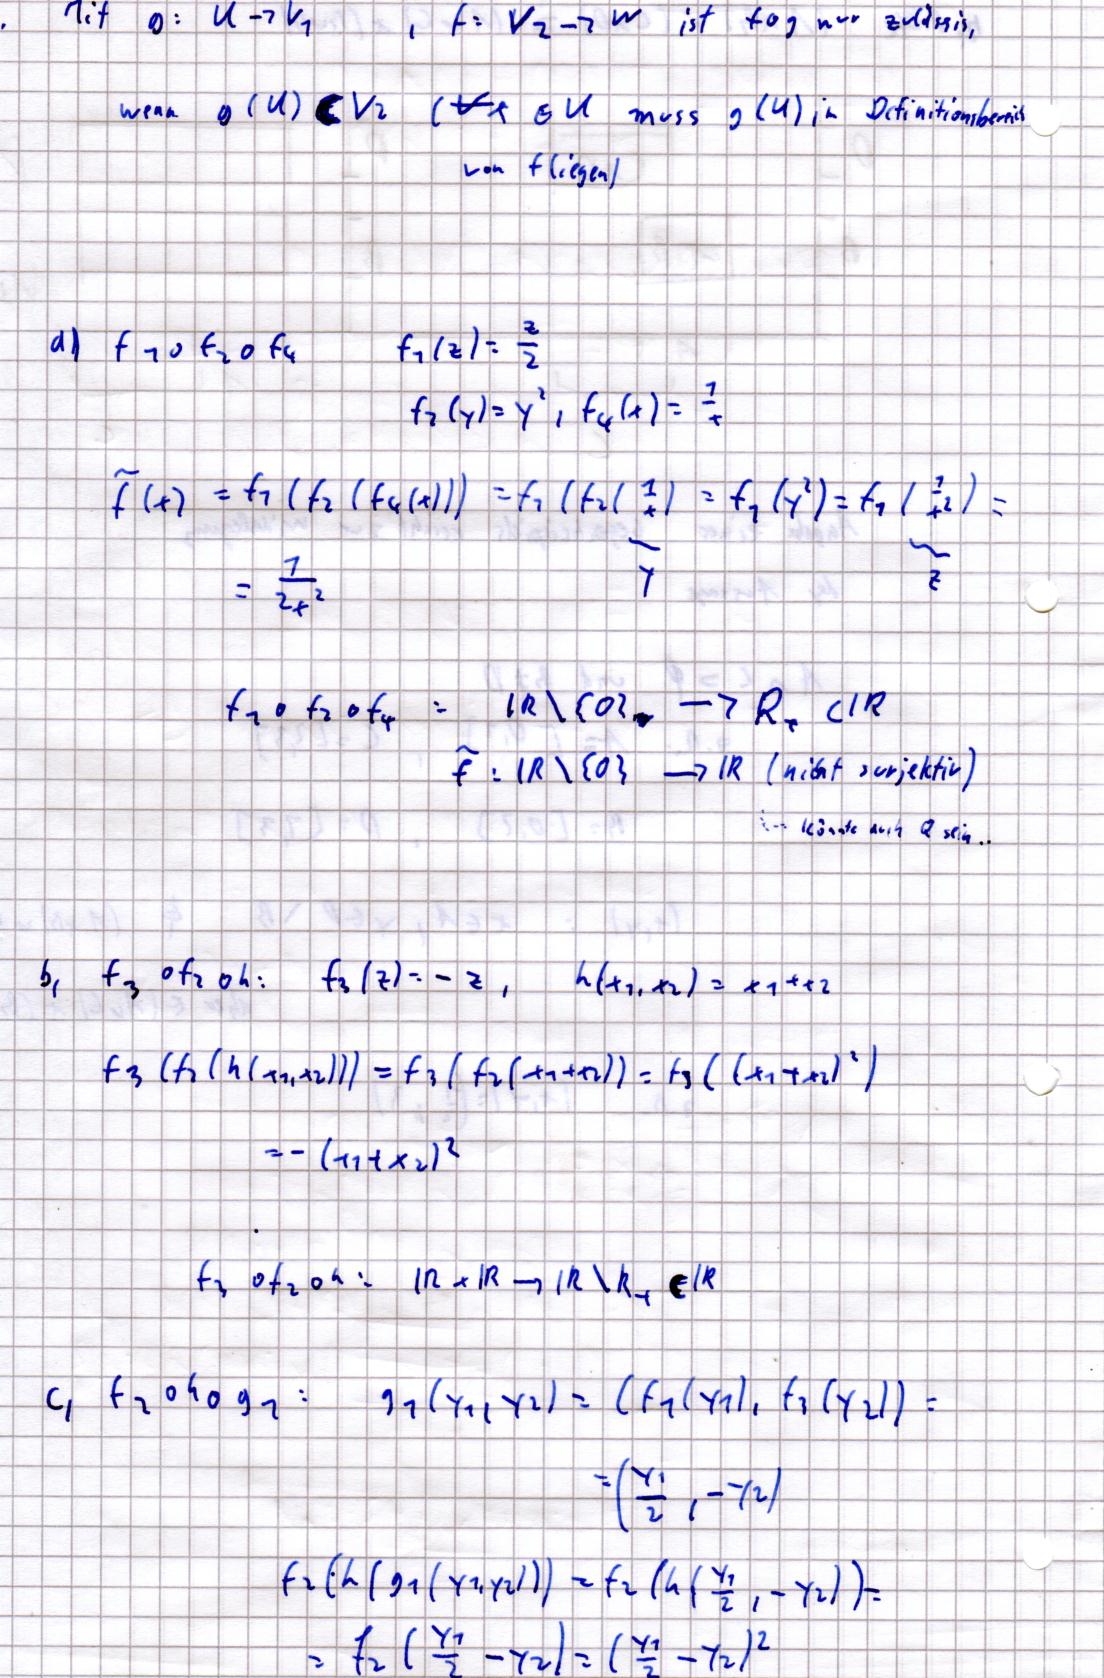 . Mit g: U → V₁ , f: V₂ → W ist f∘g nur zulässig,
wenn g(U) ⊂ V₂ (∀x ∈ U muss g(U) in Definitionsbereich
von f liegen)
a) f₁ ∘ f₂ ∘ f₄ f₁(z) = z/2
f₂(y) = y², f₄(x) = 1/x
f̃(x) = f₁(f₂(f₄(x))) = f₁(f₂(1/x) = f₁(y²) = f₁(1/x²) =
y z
= 1/2x²
f₁ ∘ f₂ ∘ f₄ : ℝ\{0} → R₊ ⊂ ℝ
f̃ : ℝ\{0} → ℝ (nicht surjektiv)
könnte auch Q sein..
b, f₃ ∘ f₂ ∘ h: f₃(z) = -z, h(x₁,x₂) = x₁+x₂
f₃(f₂(h(x₁,x₂))) = f₃(f₂(x₁+x₂)) = f₃((x₁+x₂)²)
= -(x₁+x₂)²
f₃ ∘ f₂ ∘ h : ℝ × ℝ → ℝ\R₊ ⊂ ℝ
c, f₂ ∘ h ∘ g₁ : g₁(y₁,y₂) = (f₁(y₁), f₃(y₂)) =
= (y₁/2 , -y₂)
f₂(h(g₁(y₁,y₂))) = f₂(h(y₁/2 , -y₂)) =
= f₂(y₁/2 - y₂) = (y₁/2 - y₂)²